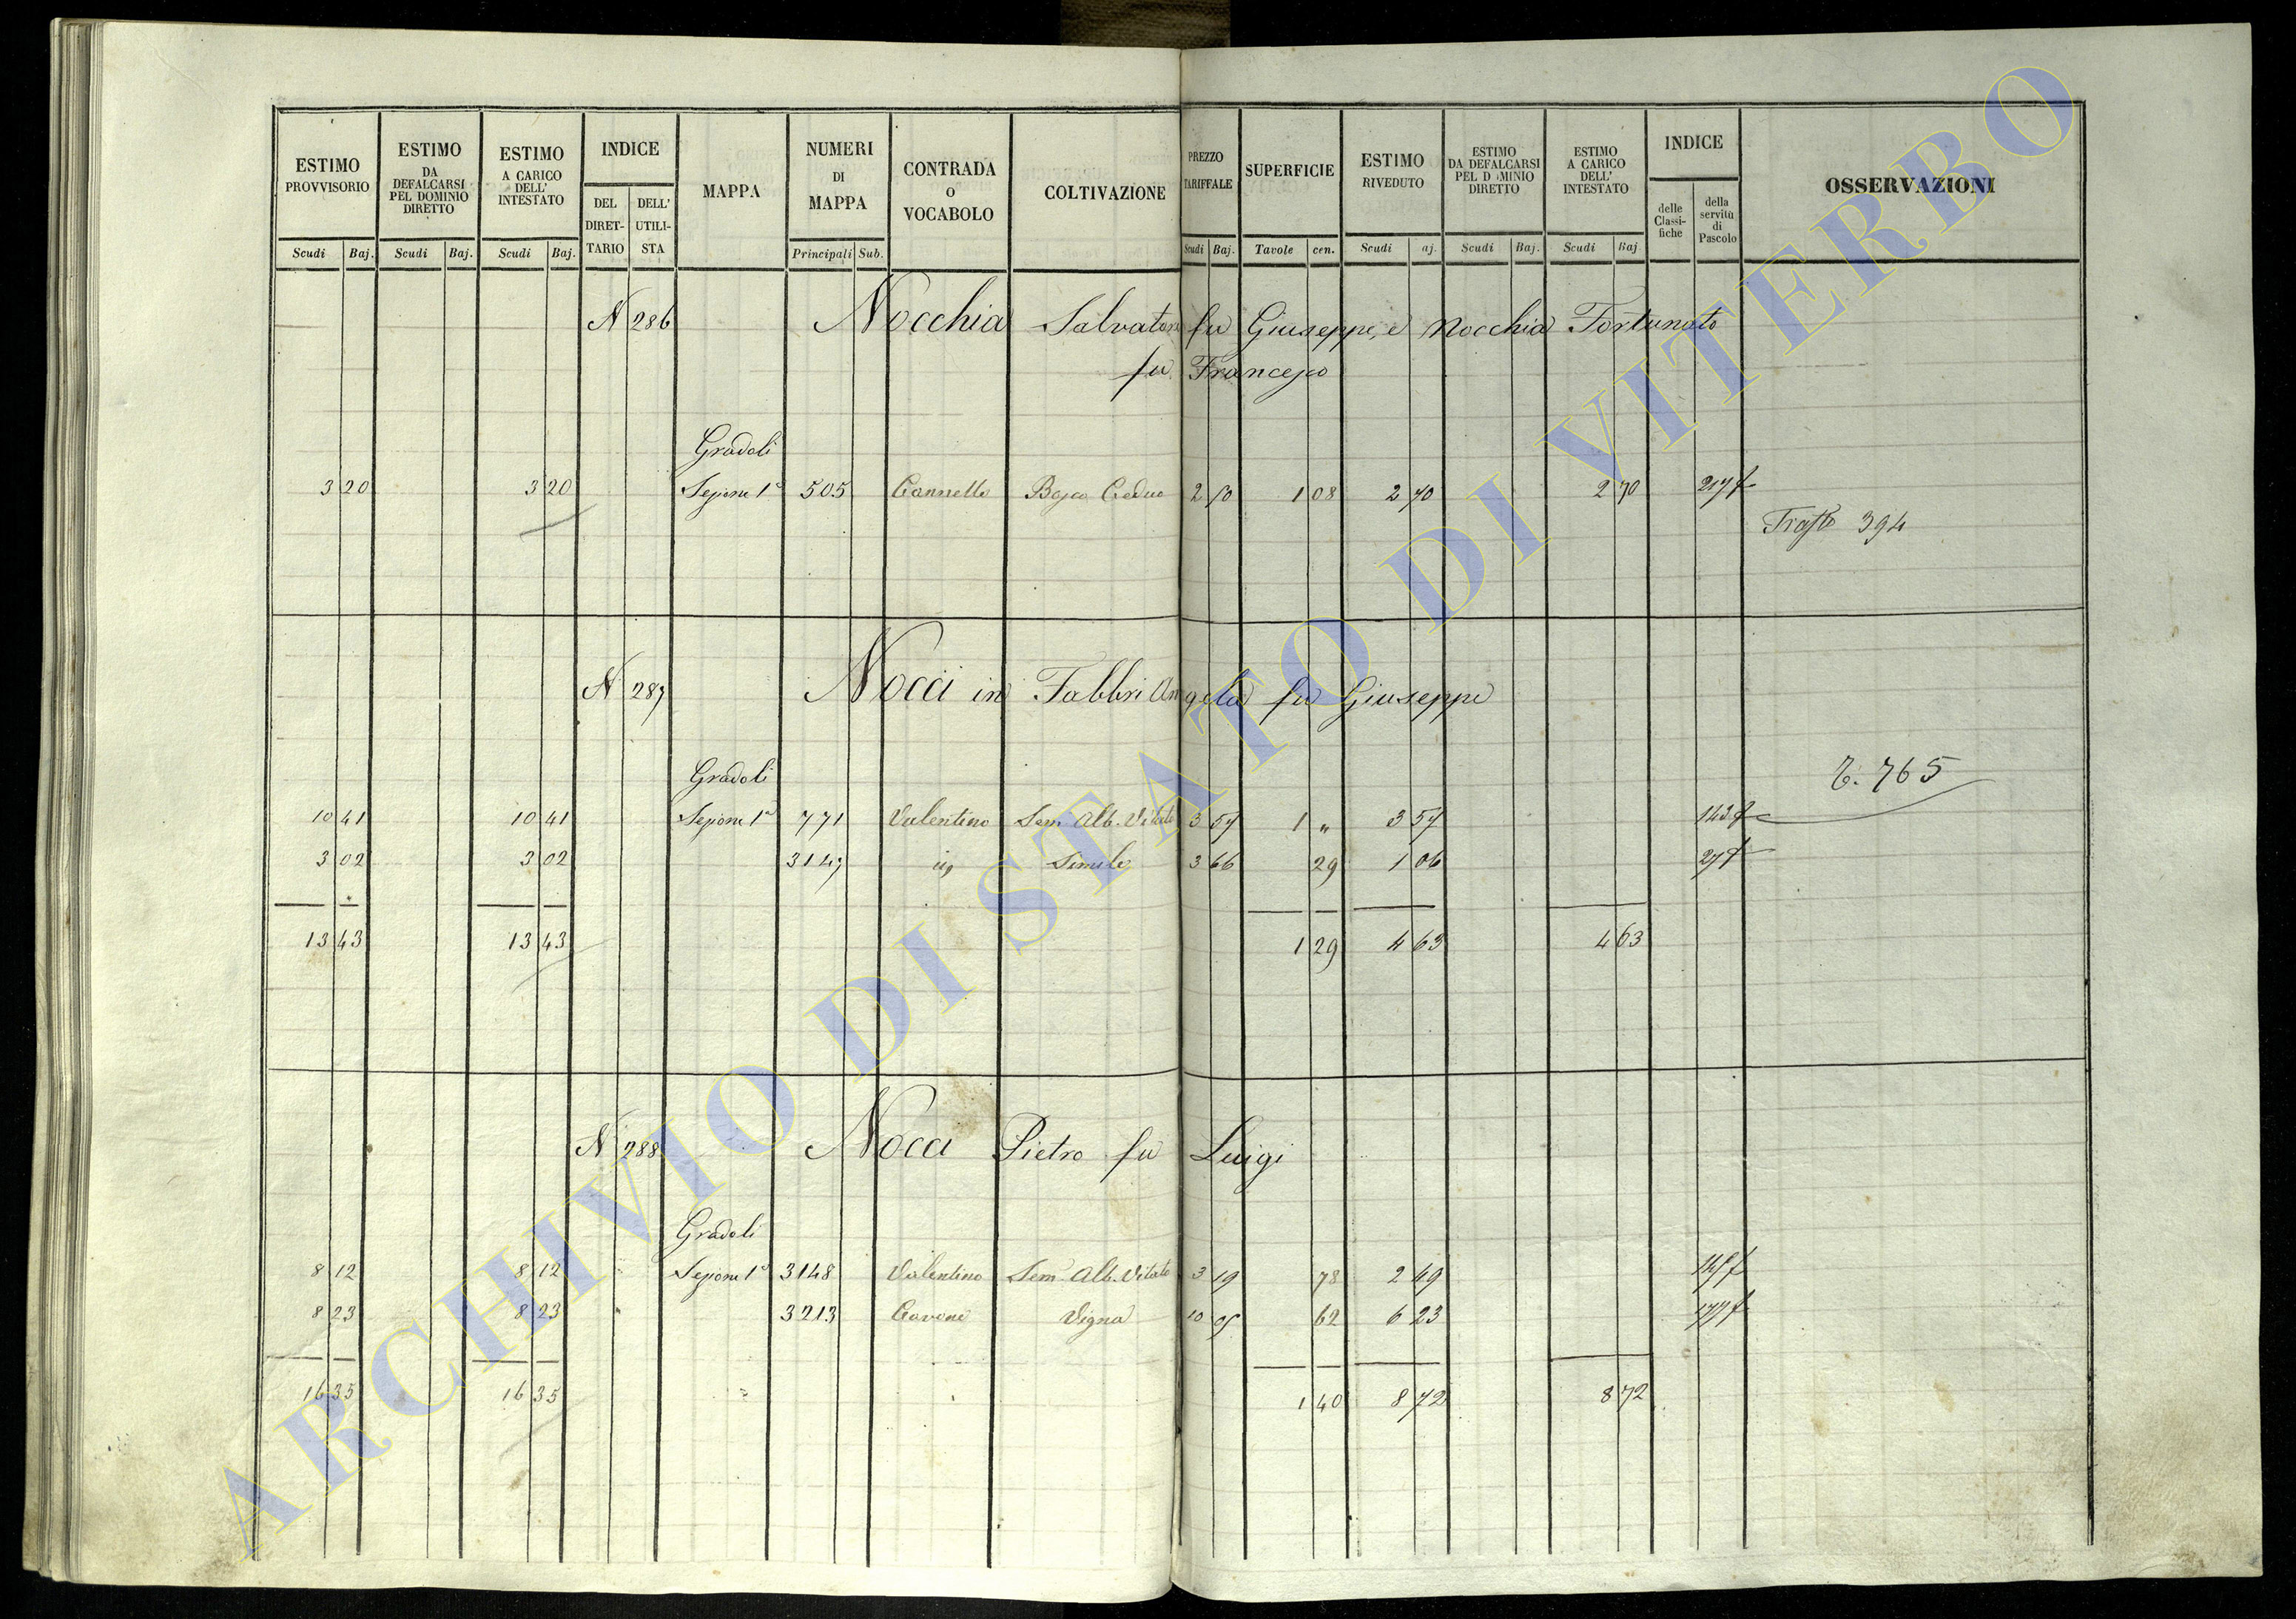 ESTIMO PROVVISORIO | ESTIMO DA DEFALCARSI PEL DOMINIO DIRETTO | ESTIMO A CARICO DELL' INTESTATO | INDICE | MAPPA | NUMERI DI MAPPA | CONTRADA O VOCABOLO | COLTIVAZIONE | PREZZO TARIFFALE | SUPERFICIE | ESTIMO RIVEDUTO | ESTIMO DA DEFALCARSI PEL D MINIO DIRETTO | ESTIMO A CARICO DELL' INTESTATO | INDICE | OSSERVAZIONI
DEL DIRETTARIO | DELL' UTILISTA | delle Classifiche | della servitù di Pascolo
Scudi | Baj. | Scudi | Baj. | Scudi | Baj. | Principali | Sub. | Scudi | Baj. | Tavole | cen. | Scudi | aj. | Scudi | Baj. | Scudi | Baj
N 286 Nocchia Salvatore fu Giuseppe, e Nocchia Fortunato
fu Francesco
Gradoli
3 20 | 3 20 | Sezione 1ª | 505 | Cannello | Bosco Ceduo | 2 50 | 1 08 | 2 70 | 2 70 | 217 f
Trasto 394
N 287 Nocci in Fabbri Angela fu Giuseppe
Gradoli
T. 765
10 41 | 10 41 | Sezione 1ª | 771 | Valentino | Sem. Alb. Vitato | 3 57 | 1 " | 3 57 | 143 f
3 02 | 3 02 | 3147 | Simile | 3 66 | 29 | 1 06 | 27 f
13 43 | 13 43 | 1 29 | 4 63 | 4 63
N 288 Nocci Pietro fu Luigi
Gradoli
8 12 | 8 12 | Sezione 1ª | 3148 | Valentino | Sem. Alb. Vitato | 3 19 | 78 | 2 49
8 23 | 8 23 | 3213 | Cavone | Vigna | 10 05 | 62 | 6 23 | 177 f
16 35 | 16 35 | 1 40 | 8 72 | 8 72
ARCHIVIO DI STATO DI VITERBO